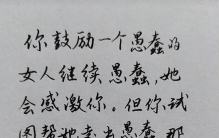 你鼓励一个愚蠢的
女人继续愚蠢，她
会感激你。但你试
图帮她走出愚蠢，那